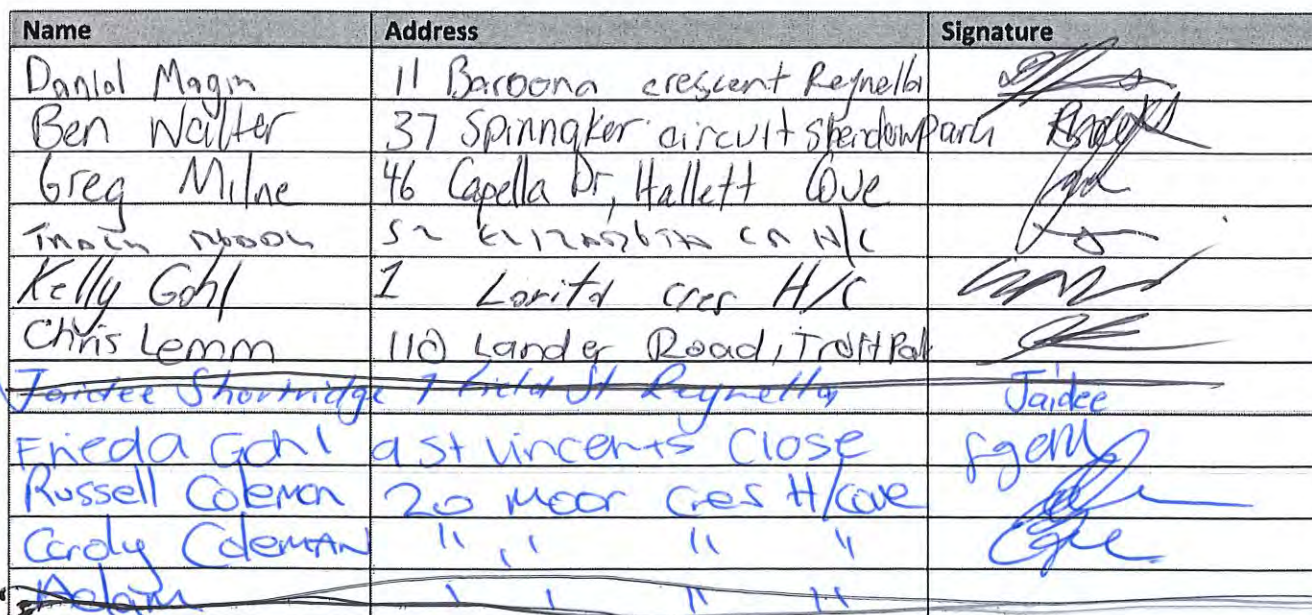 Name Address Signature
Danial Magin 11 Baroona crescent Reynella
Ben Walter 37 Spinnaker circuit Sheidow Park
Greg Milne 46 Capella Dr, Hallett Cove
52 H/C
Kelly Gohl 1 Lorita cres H/C
Chris Lemm 110 Lander Road, Trott Park
Jaidee Shortridge 7 Field St Reynella Jaidee
Frieda Gohl 9 St Vincents Close
Russell Coleman 20 Moor Cres H/Cove
Caroly Coleman " " " "
Adam " " " "